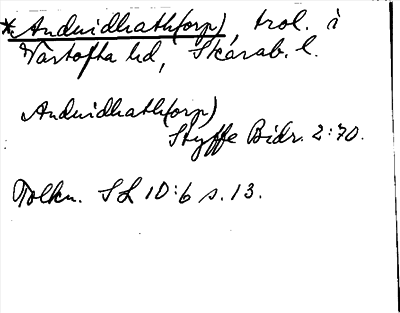 * Anduidhathorp), trol. i
Vartofta hd, Skarab. l.
Anduidhathorp)
Styffe Bidr. 2:70.
Tolkn. SL 10:6 s. 13.